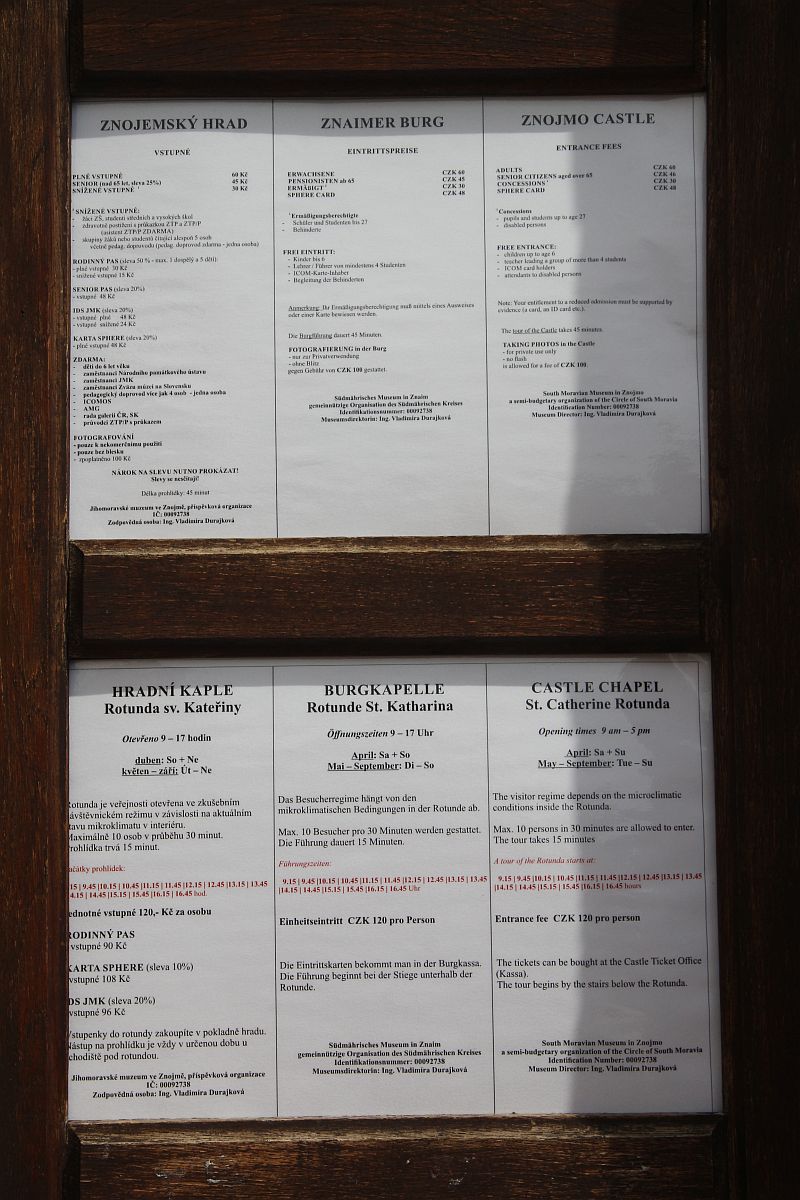 ZNOJEMSKÝ HRAD
VSTUPNÉ
PLNÉ VSTUPNÉ 60 Kč
SENIOR (nad 65 let, sleva 25%) 45 Kč
SNÍŽENÉ VSTUPNÉ 30 Kč
SNÍŽENÉ VSTUPNÉ:
- žáci ZŠ, studenti středních a vysokých škol
- zdravotně postižení s průkazkou ZTP a ZTP/P
(asistent ZTP/P ZDARMA)
- skupiny žáků nebo studentů čítající alespoň 5 osob
včetně pedag. doprovodu (pedag. doprovod zdarma - jedna osoba)
RODINNÝ PAS (sleva 50 % - max. 1 dospělý a 5 dětí):
- plné vstupné 30 Kč
- snížené vstupné 15 Kč
SENIOR PAS (sleva 20%)
- vstupné 48 Kč
IDS JMK (sleva 20%)
- vstupné plné 48 Kč
- vstupné snížené 24 Kč
KARTA SPHERE (sleva 20%)
- plné vstupné 48 Kč
ZDARMA:
- děti do 6 let věku
- zaměstnanci Národního památkového ústavu
- zaměstnanci JMK
- zaměstnanci Zväzu múzeí na Slovensku
- pedagogický doprovod více jak 4 osob - jedna osoba
- ICOMOS
- AMG
- rada galerií ČR, SK
- průvodci ZTP/P s průkazem
FOTOGRAFOVÁNÍ
- pouze k nekomerčnímu použití
- pouze bez blesku
- zpoplatněno 100 Kč
NÁROK NA SLEVU NUTNO PROKÁZAT!
Slevy se nesčítají!
Délka prohlídky: 45 minut
Jihomoravské muzeum ve Znojmě, příspěvková organizace
IČ: 00092738
Zodpovědná osoba: Ing. Vladimíra Durajková
ZNAIMER BURG
EINTRITTSPREISE
ERWACHSENE CZK 60
PENSIONISTEN ab 65 CZK 45
ERMÄßIGT CZK 30
SPHERE CARD CZK 48
Ermäßigungsberechtigte
- Schüler und Studenten bis 27
- Behinderte
FREI EINTRITT:
- Kinder bis 6
- Lehrer / Führer von mindestens 4 Studenten
- ICOM-Karte-Inhaber
- Begleitung der Behinderten
Anmerkung: Ihr Ermäßigungsberechtigung muß mittels eines Ausweises
oder einer Karte bewiesen werden.
Die Burgführung dauert 45 Minuten.
FOTOGRAFIERUNG in der Burg
- nur zur Privatverwendung
- ohne Blitz
gegen Gebühr von CZK 100 gestattet.
Südmährisches Museum in Znaim
gemeinnützige Organisation des Südmährischen Kreises
Identifikationsnummer: 00092738
Museumsdirektorin: Ing. Vladimíra Durajková
ZNOJMO CASTLE
ENTRANCE FEES
ADULTS CZK 60
SENIOR CITIZENS aged over 65 CZK 46
CONCESSIONS CZK 30
SPHERE CARD CZK 48
Concessions
- pupils and students up to age 27
- disabled persons
FREE ENTRANCE:
- children up to age 6
- teacher leading a group of more than 4 students
- ICOM card holders
- attendants to disabled persons
Note: Your entitlement to a reduced admission must be supported by
evidence (a card, an ID card etc.).
The tour of the Castle takes 45 minutes.
TAKING PHOTOS in the Castle
- for private use only
- no flash
is allowed for a fee of CZK 100.
South Moravian Museum in Znojmo
a semi-budgetary organization of the Circle of South Moravia
Identification Number: 00092738
Museum Director: Ing. Vladimíra Durajková
HRADNÍ KAPLE
Rotunda sv. Kateřiny
Otevřeno 9 – 17 hodin
duben: So + Ne
květen – září: Út – Ne
Rotunda je veřejnosti otevřena ve zkušebním
návštěvnickém režimu v závislosti na aktuálním
stavu mikroklimatu v interiéru.
Maximálně 10 osob v průběhu 30 minut.
Prohlídka trvá 15 minut.
ačátky prohlídek:
15 | 9.45 |10.15 | 10.45 |11.15 | 11.45 |12.15 | 12.45 |13.15 | 13.45
|14.15 | 14.45 |15.15 | 15.45 |16.15 | 16.45 hod.
ednotné vstupné 120,- Kč za osobu
RODINNÝ PAS
vstupné 90 Kč
KARTA SPHERE (sleva 10%)
vstupné 108 Kč
IDS JMK (sleva 20%)
vstupné 96 Kč
Vstupenky do rotundy zakoupíte v pokladně hradu.
Nástup na prohlídku je vždy v určenou dobu u
schodiště pod rotundou.
Jihomoravské muzeum ve Znojmě, příspěvková organizace
IČ: 00092738
Zodpovědná osoba: Ing. Vladimíra Durajková
BURGKAPELLE
Rotunde St. Katharina
Öffnungszeiten 9 – 17 Uhr
April: Sa + So
Mai – September: Di – So
Das Besucherregime hängt von den
mikroklimatischen Bedingungen in der Rotunde ab.
Max. 10 Besucher pro 30 Minuten werden gestattet.
Die Führung dauert 15 Minuten.
Führungszeiten:
9.15 | 9.45 |10.15 | 10.45 |11.15 | 11.45 |12.15 | 12.45 |13.15 | 13.45
|14.15 | 14.45 |15.15 | 15.45 |16.15 | 16.45 Uhr
Einheitseintritt CZK 120 pro Person
Die Eintrittkarten bekommt man in der Burgkassa.
Die Führung beginnt bei der Stiege unterhalb der
Rotunde.
Südmährisches Museum in Znaim
gemeinnützige Organisation des Südmährischen Kreises
Identifikationsnummer: 00092738
Museumsdirektorin: Ing. Vladimíra Durajková
CASTLE CHAPEL
St. Catherine Rotunda
Opening times 9 am – 5 pm
April: Sa + Su
May – September: Tue – Su
The visitor regime depends on the microclimatic
conditions inside the Rotunda.
Max. 10 persons in 30 minutes are allowed to enter.
The tour takes 15 minutes
A tour of the Rotunda starts at:
9.15 | 9.45 |10.15 | 10.45 |11.15 | 11.45 |12.15 | 12.45 |13.15 | 13.45
|14.15 | 14.45 |15.15 | 15.45 |16.15 | 16.45 hours
Entrance fee CZK 120 pro person
The tickets can be bought at the Castle Ticket Office
(Kassa).
The tour begins by the stairs below the Rotunda.
South Moravian Museum in Znojmo
a semi-budgetary organization of the Circle of South Moravia
Identification Number: 00092738
Museum Director: Ing. Vladimíra Durajková